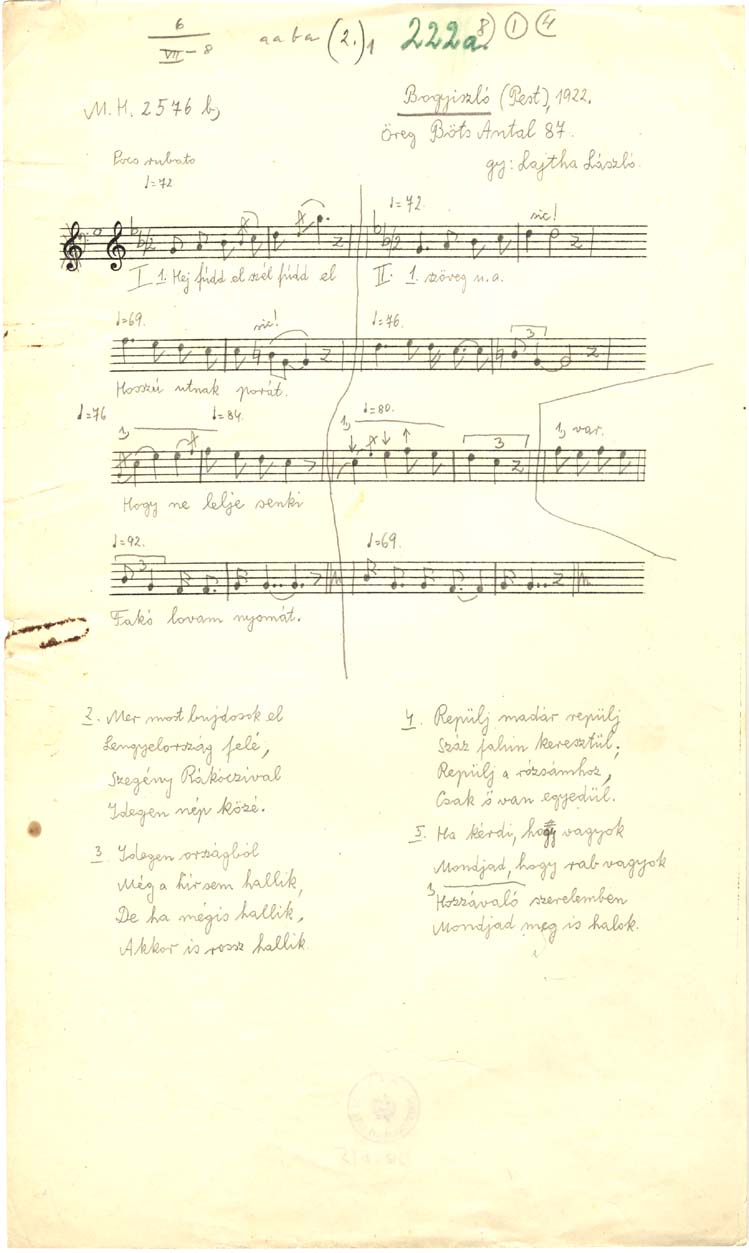 6
VII-8
aaba (2.)1 222a. 8) 1 4
M.H. 2576 b,
Bogyiszló (Pest), 1922.
Öreg Böts Antal 87.
gy: Lajtha László.
Poco rubato
♩=72
♩=72.
sic!
I 1. Hej fúdd el szél fúdd el
II. 1. szöveg u.a.
♩=69.
sic!
♩=76.
3
Hosszú utnak porát.
♩=76
♩=84.
♩=80.
1,
1,
3
1, var.
Hogy ne lelje senki
♩=92.
3
♩=69.
Fakó lovam nyomát.
2. Mer most bujdosok el
Lengyelország felé,
Szegény Rákóczival
Idegen nép közé.
3 Idegen országból
Még a hír sem hallik,
De ha mégis hallik,
Akkor is rossz hallik.
4. Repülj madár repülj
Száz falun keresztül,
Repülj a rózsámhoz,
Csak ő van egyedül.
5. Ha kérdi, hogy vagyok
Mondjad, hogy rab vagyok
Hozzávaló szerelemben
Mondjad meg is halok.